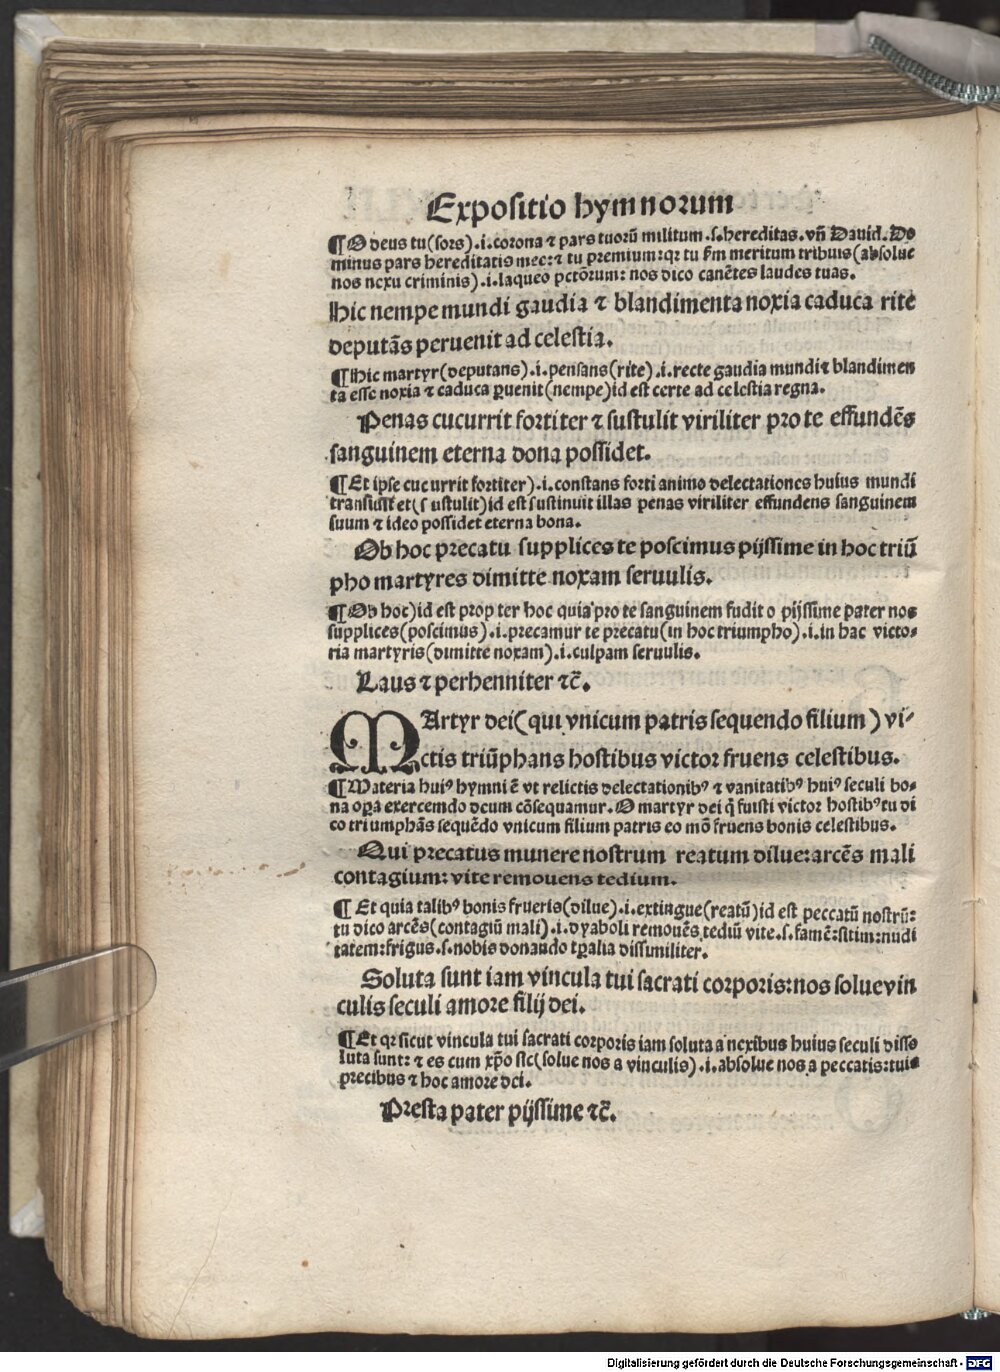 Expositio hymnorum
¶O deus tu(sors).i.corona ⁊ pars tuorū militum.s.hereditas.vñ Dauid.Do
minus pars hereditatis mee:⁊ tu premium:qꝛ tu ẜm meritum tribuis(absolue
nos nexu criminis).i.laqueo pctōrum: nos dico canētes laudes tuas.
Hic nempe mundi gaudia ⁊ blandimenta noxia caduca rite
deputās peruenit ad celestia.
¶Hic martyr(deputans).i.pensans(rite).i.recte gaudia mundi⁊ blandimen
ta esse noxia ⁊ caduca ꝑuenit(nempe)id est certe ad celestia regna.
Penas cucurrit fortiter ⁊ sustulit viriliter pro te effundēs
sanguinem eterna dona possidet.
¶Et ipse cucurrit fortiter).i.constans forti animo delectationes huius mundi
transiuit et(sustulit)id est sustinuit illas penas viriliter effundens sanguinem
suum ⁊ ideo possidet eterna bona.
Ob hoc precatu supplices te poscimus pijssime in hoc triū
pho martyres dimitte noxam seruulis.
¶Ob hoc)id est prop ter hoc quia pro te sanguinem fudit o pijssime pater nos
supplices(poscimus).i.precamur te precatu(in hoc triumpho).i.in hac victo⸗
ria martyris(dimitte noxam).i.culpam seruulis.
Laus ⁊ perhenniter ⁊c̄.
MArtyr dei(qui vnicum patris sequendo filium) vi⸗
ctis triūphans hostibus victor fruens celestibus.
¶Materia huiꝰ hymni ē vt relictis delectationibꝰ ⁊ vanitatibꝰ huiꝰ seculi bo⸗
na oꝑa exercemdo deum cōsequamur. O martyr dei q̄ fuisti victor hostibꝰ tu di
co triumphās sequēdo vnicum filium patris eo mō fruens bonis celestibus.
Qui precatus munere nostrum reatum dilue:arcēs mali
contagium: vite remouens tedium.
¶ Et quia talibꝰ bonis frueris(dilue).i.extingue(reatū)id est peccatū nostrū:
tu dico arcēs(contagiū mali).i.dyaboli remouēs tediū vite.s.famē:sitim:nudi
tatem:frigus.s.nobis donando tꝑalia dissimiliter.
Soluta sunt iam vincula tui sacrati corporis:nos soluevin
culis seculi amore filij dei.
¶Et qꝛ sicut vincula tui sacrati corporis iam soluta a nexibus huius seculi disso
luta sunt: ⁊ es cum xp̄o sic(solue nos a vinculis).i.absolue nos a peccatis:tuis
precibus ⁊ hoc amore dei.
Presta pater pijssime ⁊c̄.
Digitalisierung gefördert durch die Deutsche Forschungsgemeinschaft - DFG